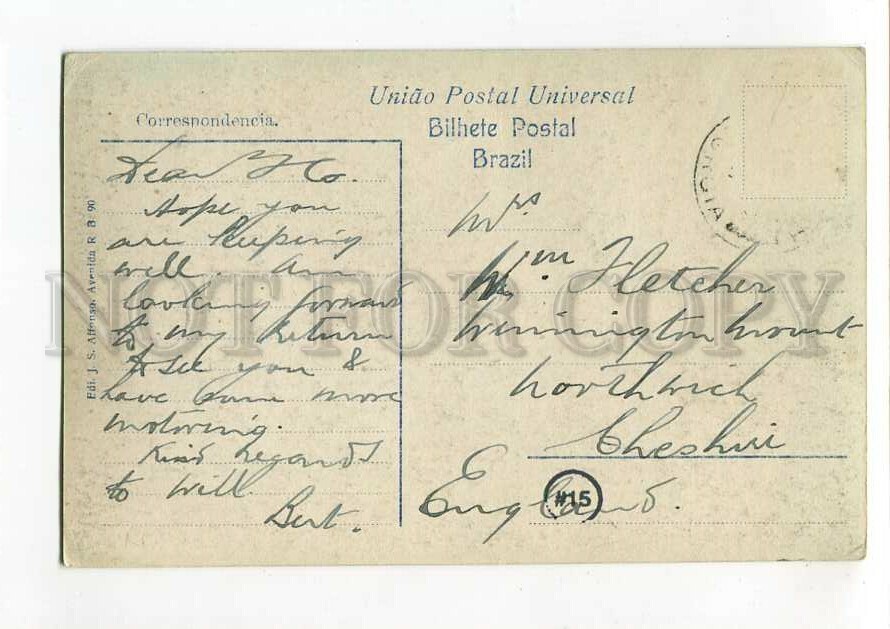 União Postal Universal
Bilhete Postal
Brazil
Correspondencia.
Dear Flo.
Hope you
are keeping
well. Am
looking forward
to my return
to see you &
have some more
motoring.
Kind regards
to Will
Bert.
Mrs
Wm Fletcher
Winnington Mount
Northwich
Cheshire
England.
#15
Edi. J. S. Affonso, Avenida R B 90
NOT FOR COPY